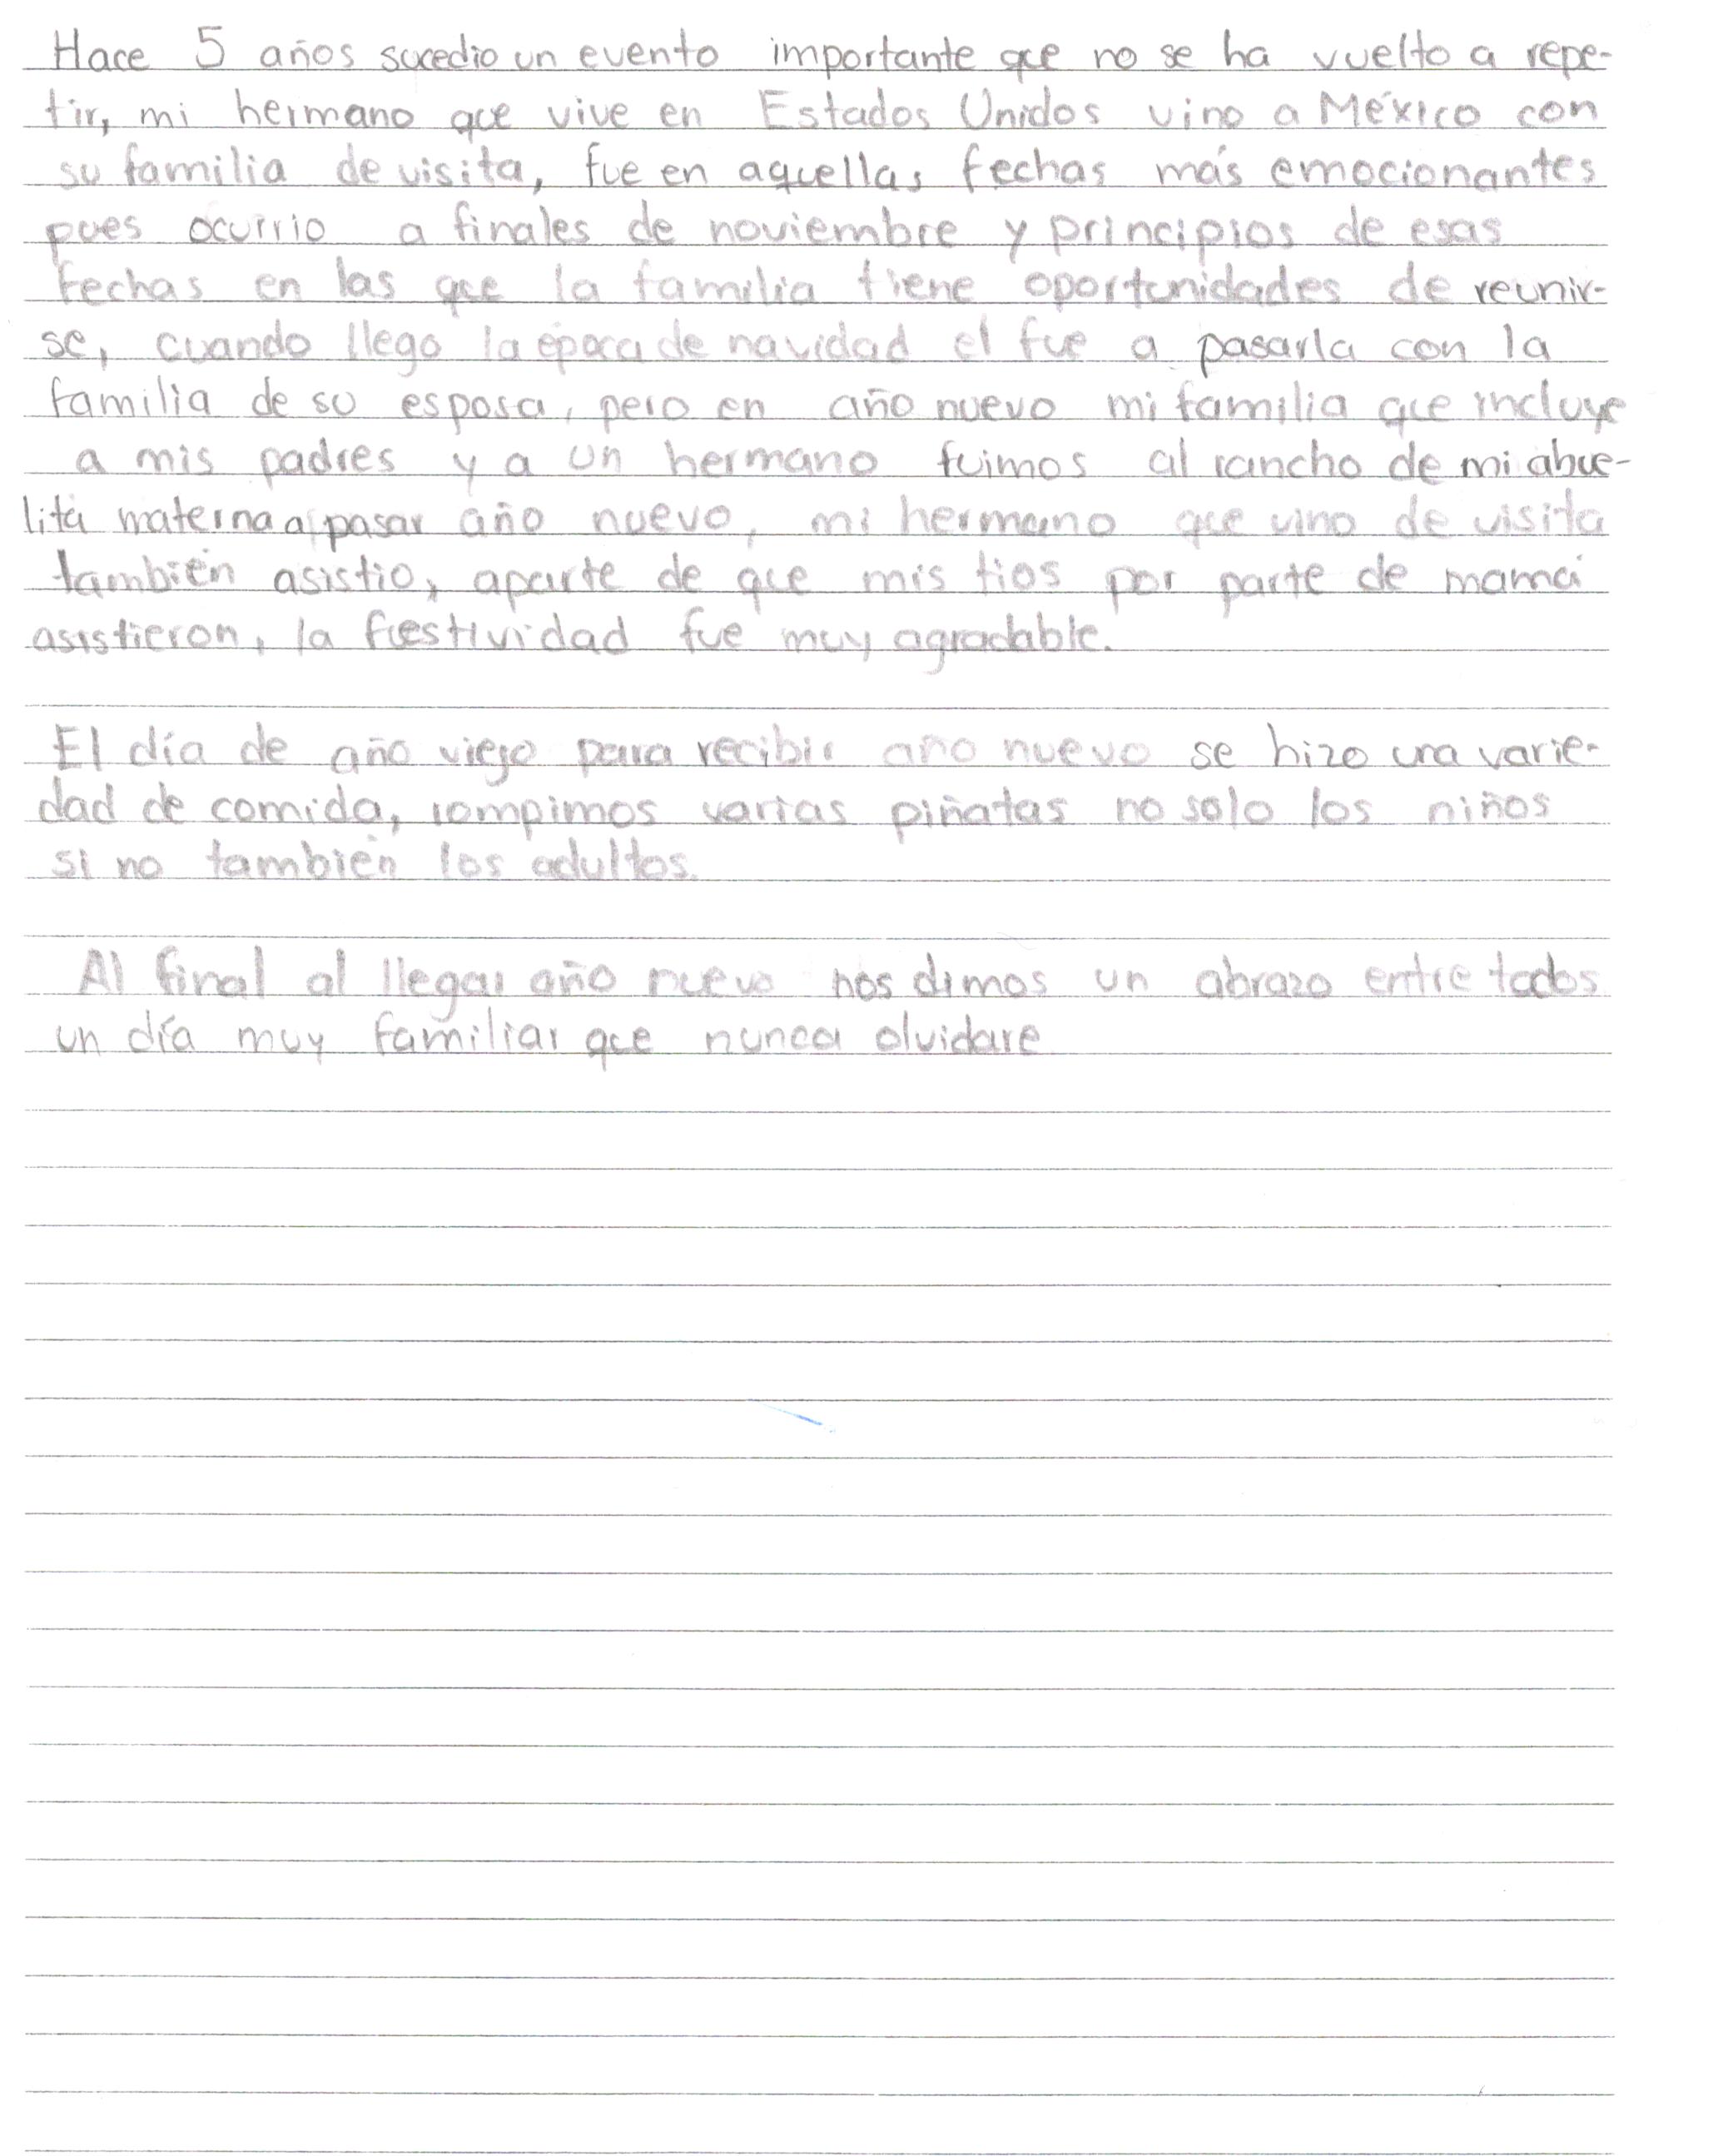 Hace 5 años sucedio un evento importante que no se ha vuelto a repe-
tir, mi hermano que vive en Estados Unidos vino a México con
su familia de visita, fue en aquellas fechas más emocionantes
pues ocurrio a finales de noviembre y principios de esas
fechas en las que la familia tiene oportunidades de reunir-
se, cuando llego la época de navidad el fue a pasarla con la
familia de su esposa, pero en año nuevo mi familia que incluye
a mis padres y a un hermano fuimos al rancho de mi abue-
lita materna a pasar año nuevo, mi hermano que vino de visita
también asistio, aparte de que mis tios por parte de mamá
asistieron, la festividad fue muy agradable.
El día de año viejo para recibir año nuevo se hizo una varie-
dad de comida, rompimos varias piñatas no solo los niños
si no también los adultos.
Al final al llegar año nuevo nos dimos un abrazo entre todos
un día muy familiar que nunca olvidare